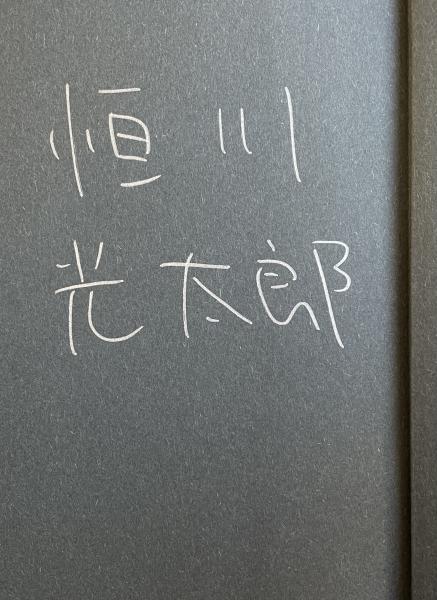 恒川
光太郎